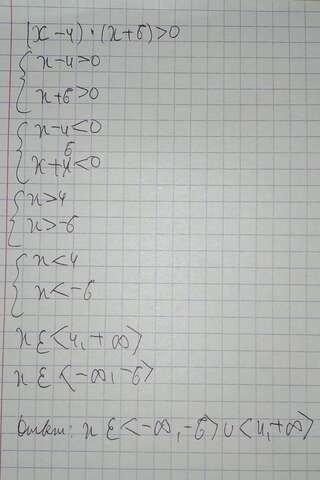 (x-4)·(x+6)>0
{ x-4>0
x+6>0
{ x-4<0
x+6<0
{ x>4
x>-6
{ x<4
x<-6
x ∈ <4, +∞>
x ∈ <-∞, -6>
Ответ: x ∈ <-∞, -6> ∪ <4, +∞>